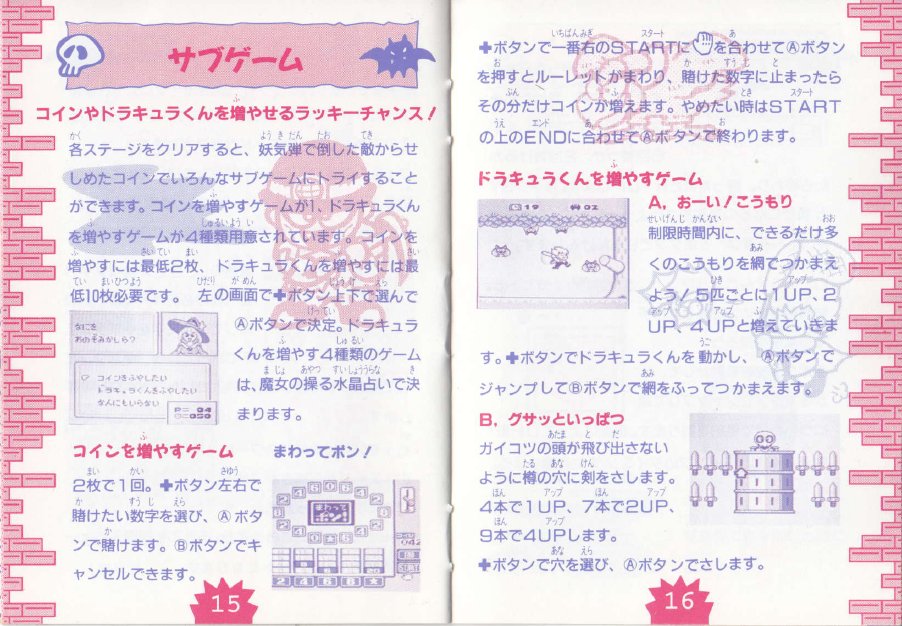 サブゲーム
コインやドラキュラくんを増やせるラッキーチャンス!
各ステージをクリアすると、妖気弾で倒した敵からせ
しめたコインでいろんなサブゲームにトライすること
ができます。コインを増やすゲームが1、ドラキュラくん
を増やすゲームが4種類用意されています。コインを
増やすには最低2枚、ドラキュラくんを増やすには最
低10枚必要です。 左の画面で✚ボタン上下で選んで
Ⓐボタンで決定。ドラキュラ
くんを増やす4種類のゲーム
は、魔女の操る水晶占いで決
まります。
なにを
おのぞみかしら?
コインをふやしたい
ドラキュラくんをふやしたい
なんにもいらない
P= 04
050
コインを増やすゲーム
まわってポン!
2枚で1回。✚ボタン左右で
賭けたい数字を選び、Ⓐボタ
ンで賭けます。Ⓑボタンでキ
ャンセルできます。
まわって
ポン!
042
2 4 6 8
15
✚ボタンで一番右のSTARTに を合わせてⒶボタン
を押すとルーレットがまわり、賭けた数字に止まったら
その分だけコインが増えます。やめたい時はSTART
の上のENDに合わせてⒶボタンで終わります。
ドラキュラくんを増やすゲーム
19 02
A, おーい!こうもり
制限時間内に、できるだけ多
くのこうもりを網でつかまえ
よう! 5匹ごとに1UP、2
UP、4UPと増えていきま
す。✚ボタンでドラキュラくんを動かし、Ⓐボタンで
ジャンプしてⒷボタンで網をふってつかまえます。
B, グサッといっぱつ
ガイコツの頭が飛び出さない
ように樽の穴に剣をさします。
4本で1UP、7本で2UP、
9本で4UPします。
✚ボタンで穴を選び、Ⓐボタンでさします。
16